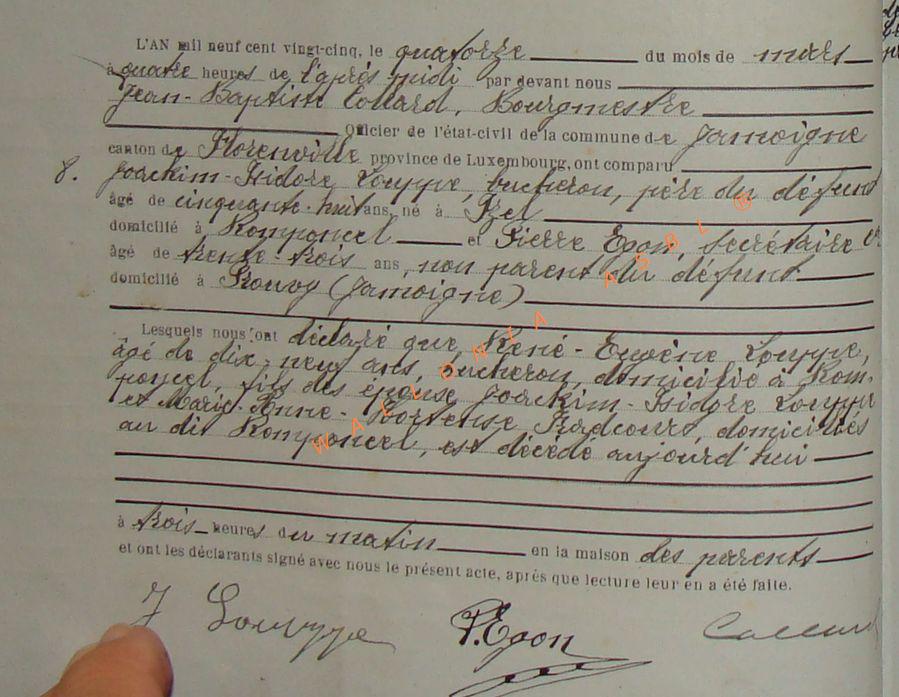 L'AN mil neuf cent vingt-cinq, le quatorze du mois de mars
à quatre heures de l'après midi par devant nous
Jean-Baptiste Collard, Bourgmestre
Officier de l'état-civil de la commune de Jamoigne
canton de Florenville province de Luxembourg, ont comparu
8. Joachim-Isidore Louppe, bucheron, père du défunt
âgé de cinquante-huit ans, né à Izel
domicilié à Romponcel et Pierre Egon, secrétaire
âgé de trente-trois ans, non parent du défunt
domicilié à Rouvoy (Jamoigne)
Lesquels nous ont déclaré que, René-Eugène Louppe,
âgé de dix-neuf ans, bucheron, domicilié à Rom-
poncel, fils des époux Joachim-Isidore Louppe
et Marie-Anne-Hortense domiciliés
au dit Romponcel, est décédé aujourd'hui
à trois heures du matin en la maison des parents
et ont les déclarants signé avec nous le présent acte, après que lecture leur en a été faite.
J Louppe P. Egon Collard
WALLONIA ASBL ®